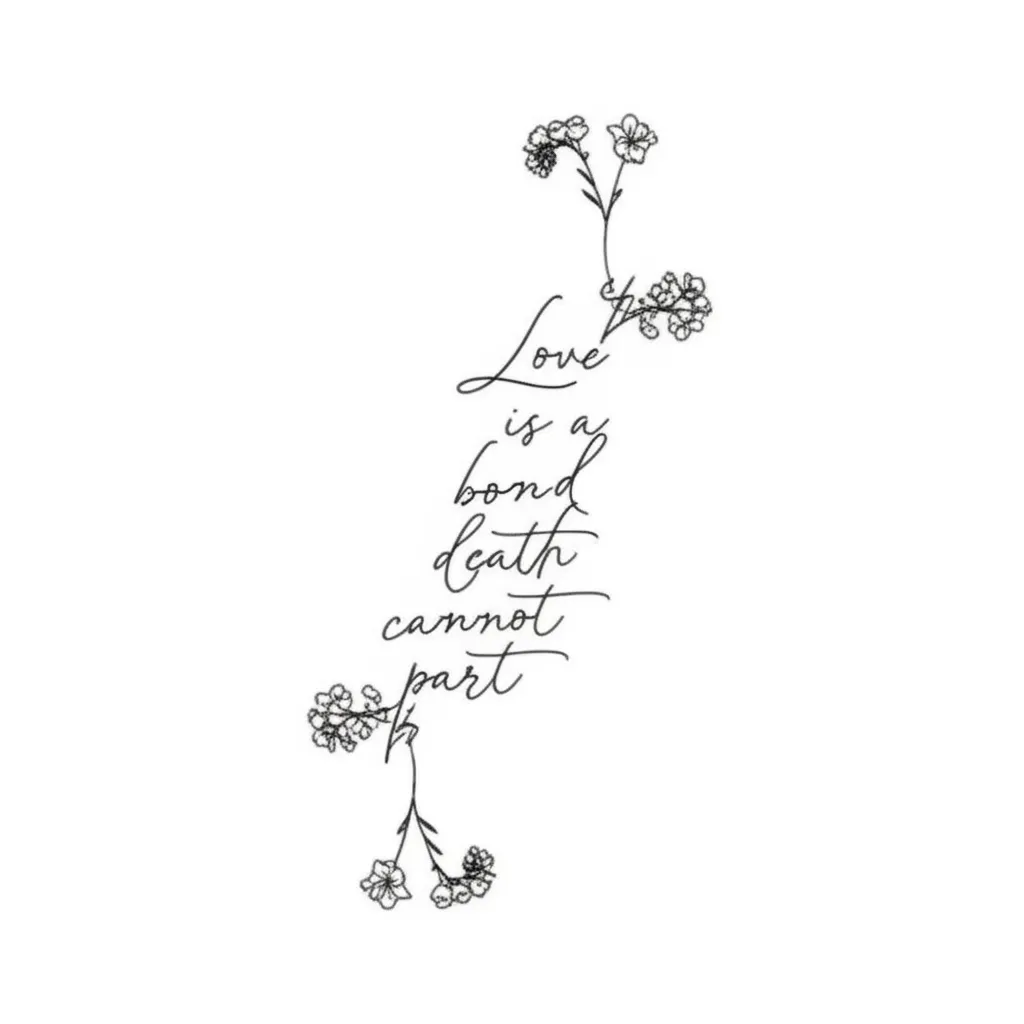 Love
is a
bond
death
cannot
part